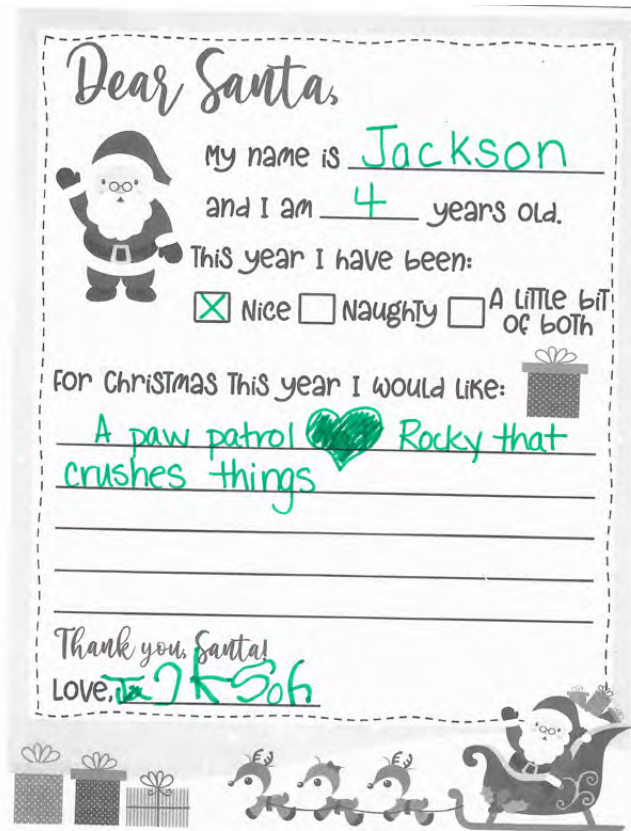 Dear Santa,
My name is Jackson
and I am 4 years old.
This year I have been:
Nice Naughty A little bit of both
For Christmas this year I would like:
A paw patrol Rocky that
crushes things
Thank you, Santa!
Love, Jackson